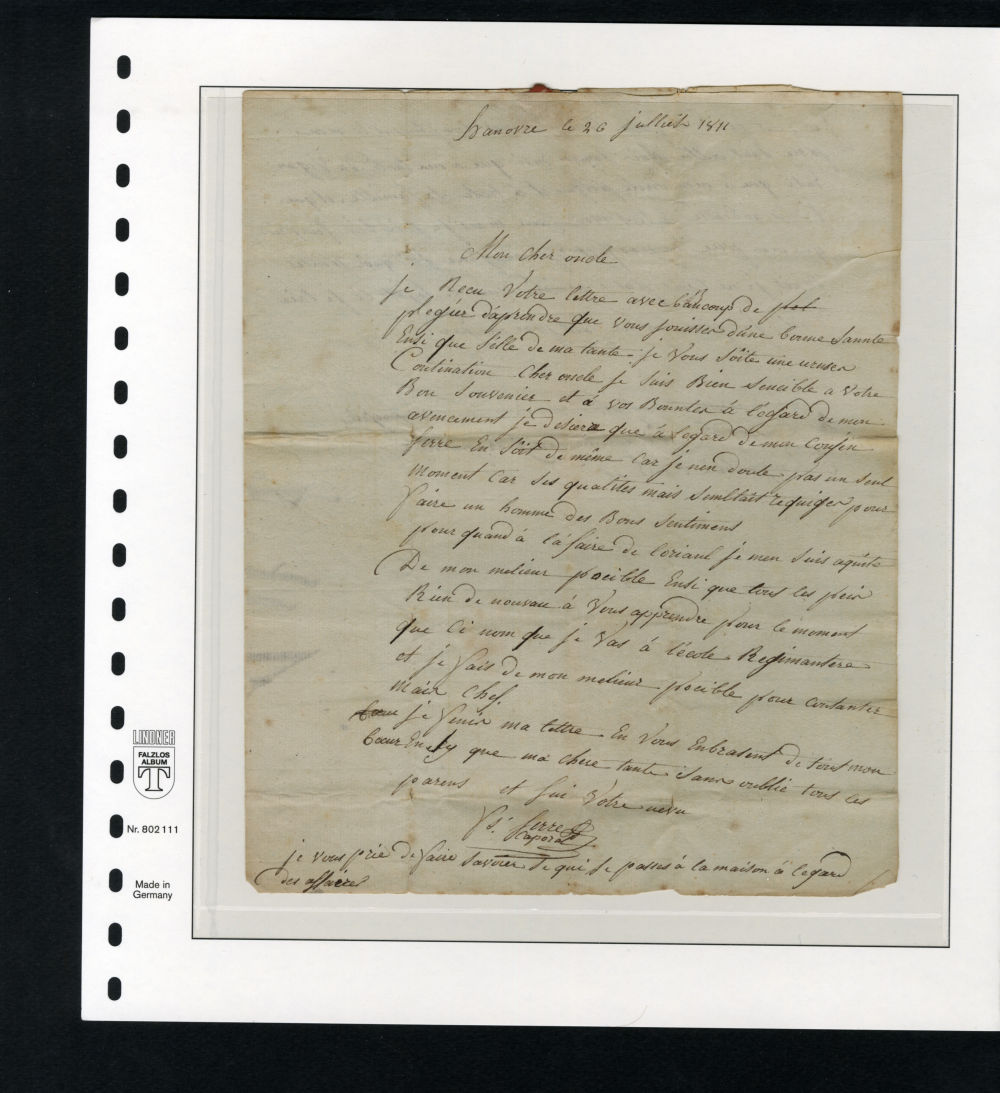 hanovre le 26 julliet 1811
Mon cher oncle
je Recu Votre lettre avec bàucoup de
plegier d'aprendre que vous jouisser d'une bonne sannte
Ensi que selle de ma tante je Vous sôite une ureuser
Continuation Cher oncle je suis Bien sencible a Votre
Bon souvenier et à vos Bountes à l'egard de mon
avencement je desiere que à legard de mon Cousin
ferre En sôit de même Car je nen doute pas un seul
moment Car ses qualites mais semblait requiger pour
faire un homme des Bons sentimens
pour quand à l'àfaire de loriaul je men suis aquité
De mon melieur pocible Ensi que tous les peix
Rien de nouvau à Vous apprendre pour le moment
que Ci nom que je Vas à lécole Regimantere
et je fais de mon melieur pocible pour contanter
main Chef
je finir ma lettre En Vous Enbrasent de tout mon
Cœur En sy que ma chere tante sans oublie tous les
parens et sui Votre nevu
ferre
Caporal
je vous prie de faire savoir se qui se passes à la maison à legard
des affaires
LINDNER
FALZLOS
ALBUM
T
Nr. 802 111
Made in
Germany